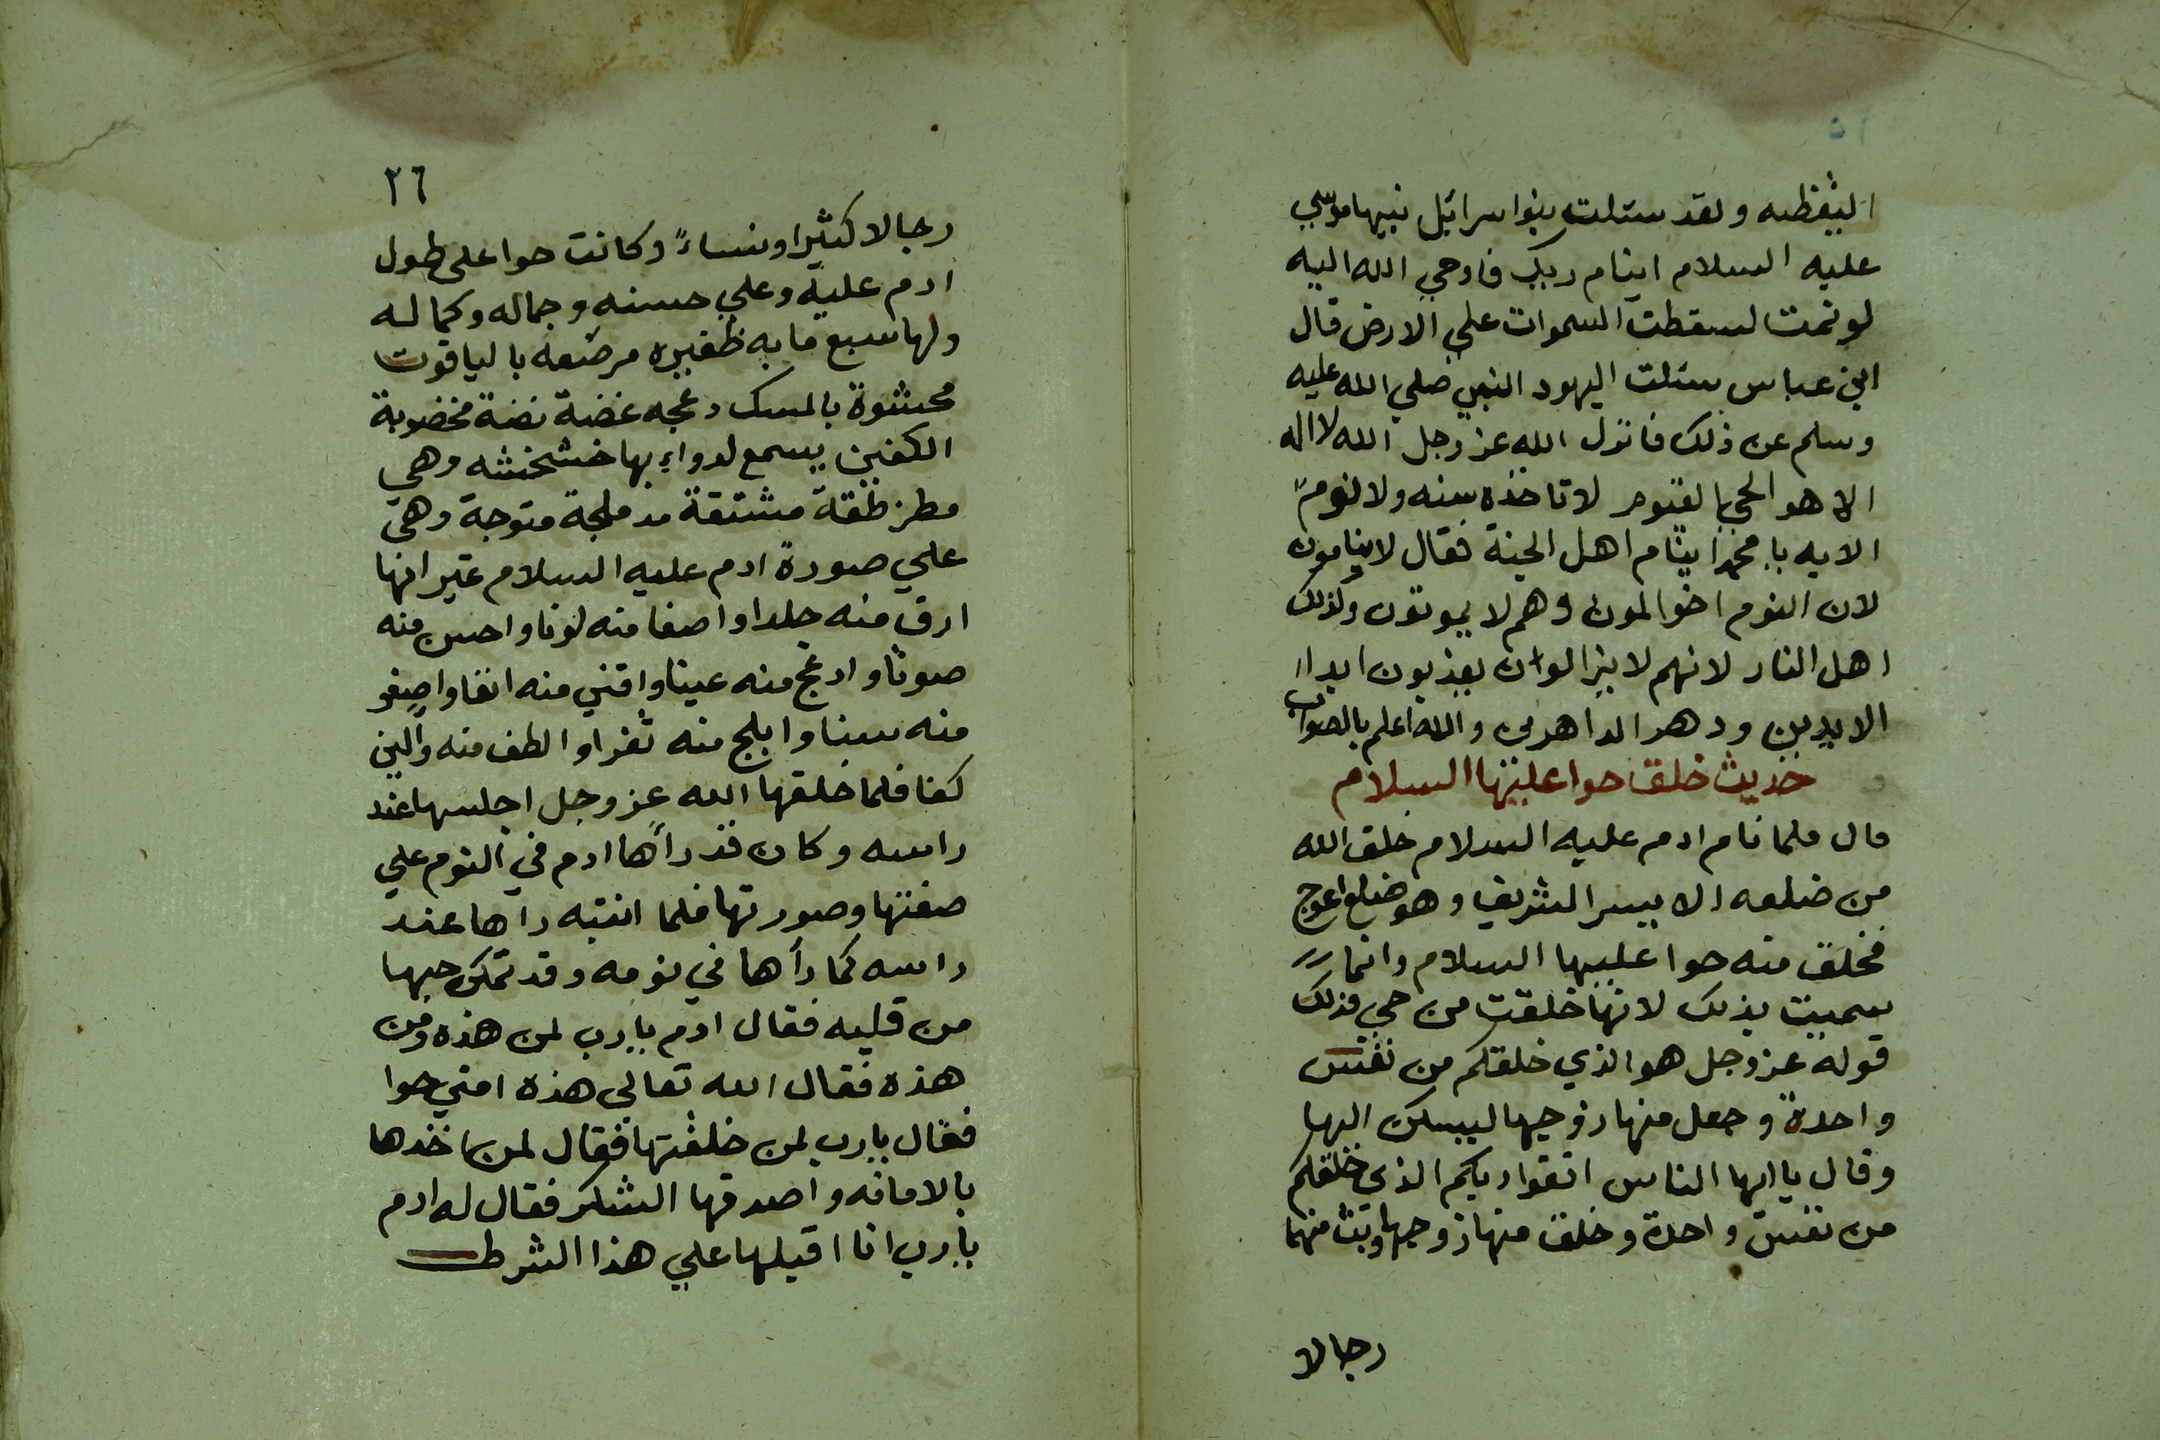 اليقظه ولقد سئلت بنوا سرائيل نبيها موسي
عليه السلام اينام ربك فاوحي الله اليه
لو نمت لسقطت السموات علي الارض قال
ابن عباس سئلت اليهود النبي صلي الله عليه
وسلم عن ذلك فانزل الله عز وجل الله لا اله
الا هو الحي القيوم لا تاخذه سنه ولا نوم
الايه يا محمد اينام اهل الجنة فقال لا ينامون
لان النوم اخوا لموت وهم لا يموتون وكذلك
اهل النار لانهم لا يزالوان يعذبون ابدا
الابدين ودهر الداهرين والله اعلم بالصواب
حديث خلق حوا عليها السلام
قال فلما نام ادم عليه السلام خلق الله
من ضلعه الايسر الشريف وهو ضلع اعوج
فخلق منه حوا عليها السلام وانما
سميت بذلك لانها خلقت من حي فذلك
قوله عز وجل هو الذي خلقكم من نفس
واحدة وجعل منها زوجها ليسكن اليها
وقال يا ايها الناس اتقوا ربكم الذي خلقكم
من نفس واحدة وخلق منها زوجها وبث منهما
رجالا
٢٦
رجالا كثيرا ونساءً وكانت حوا على طول
ادم عليه وعلي حسنه وجماله وكماله
ولها سبع مايه ظفيره مرصعه بالياقوت
محشوة بالمسك دعجه غضة نضة مخضوبة
الكفين يسمع لدواءبها خشخشه وهي
مشتقة مدملجة متوجة وهي
علي صورة ادم عليه السلام غير انها
ارق منه جلدا واصفا منه لونا واحسن منه
صوتا وادعج منه عينا واقني منه انفا واصغر
منه سنا وابلج منه ثغرا والطف منه والين
كفا فلما خلقها الله عز وجل اجلسها عند
راسه وكان قد رأها ادم في النوم علي
صفتها وصورتها فلما انتبه راها عند
راسه كما رأها في نومه وقد تمكن حبها
من قلبه فقال ادم يارب لمن هذه ومن
هذه فقال الله تعالي هذه امتي حوا
فقال يارب لمن خلقتها فقال لمن ياخدها
بالامانه واصدقها الشكر فقال له ادم
يارب انا اقبلها علي هذا الشرط